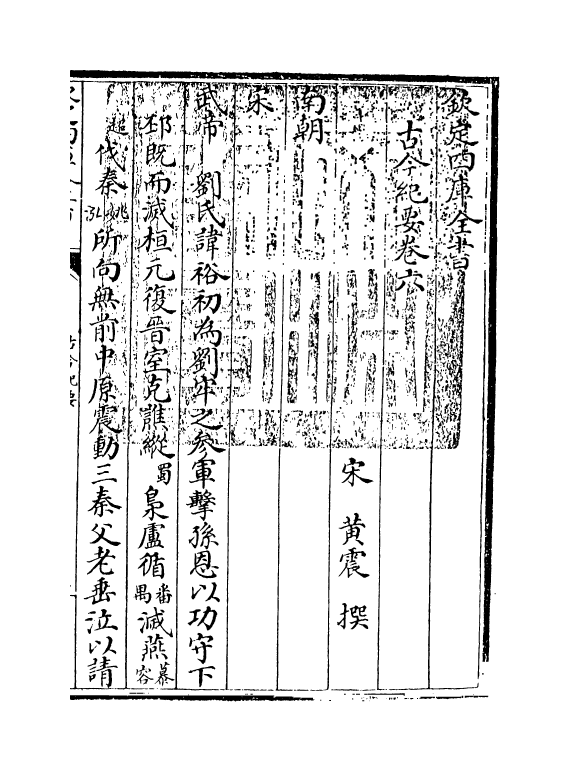 欽定四庫全書
古今紀要卷六
宋 黄震 撰
南朝
宋
武帝 劉氏諱裕初為劉牢之參軍擊孫恩以功守下
邳既而滅桓元復晉室克譙縱蜀梟盧循番禺滅燕慕容
超伐秦姚泓所向無前中原震動三秦父老垂泣以請
古今紀要